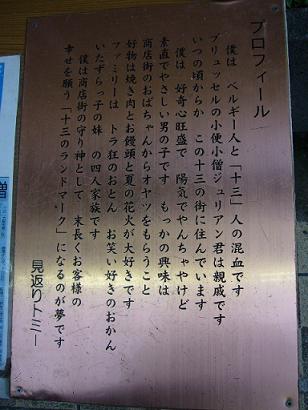 プロフィール
僕は ベルギー人と「十三」人の混血です
ブリュッセルの小便小僧ジュリアン君は親戚です
いつの頃からか この十三の街に住んでいます
僕は 好奇心旺盛で 陽気でやんちゃやけど
素直でやさしい男の子です もっかの興味は
商店街のおばちゃんからオヤツをもらうこと
好物は焼き肉とお饅頭と夏の花火が大好きです
ファミリーは トラ狂のおとん お笑い好きのおかん
いたずらっ子の妹 の四人家族です
僕は商店街の守り神として 末長くお客様の
幸せを願う「十三のランドマーク」になるのが夢です
見返りトミー